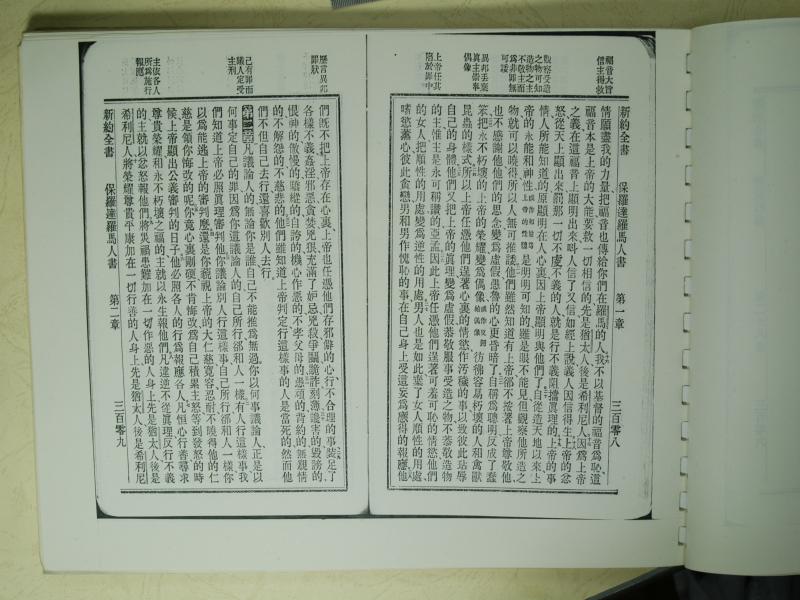 福音大旨
信主得救
觀察受造
之物可知
造物之主
不敬主而
爲非罪無
可諉
異邦丟棄
眞主崇事
偶像
上帝任其
陷於罪中
新約全書 保羅達羅馬人書 第一章 三百零八
情願盡我的力量把福音也傳給你們在羅馬的人、我不以基督的福音爲恥、這
福音本是上帝的大能要救一切相信的先是猶太人後是希利尼人因爲上帝
之義在這福音上顯明出來呌人信了又信如經上說義人因信得生上帝的忿
怒從天上顯出來罰那一切不虔不義的人就是行不義阻擋眞理的上帝的事
情人所能知道的原顯明在人心裏因上帝顯明與他們了自從造天地以來上
帝的永能和神性 上帝的性 是明明可知的雖是眼不能見但觀察他所造之
物就可以曉得所以人無可推諉他們雖然知道有上帝却不按著上帝尊敬他、
也不感謝他他們的思念變爲虛假愚魯的心更昏暗了自稱爲聰明反成了蠢
笨把永不朽壞的上帝的榮耀變爲偶像 彷彿容易朽壞的人和禽獸
昆蟲的樣式所以上帝任憑他們逞著心裏的情慾作汚穢的事以致彼此玷辱
自己的身體他們又把上帝的眞理變爲虛假恭敬服事受造之物不恭敬造物
的主惟主是永可稱讚的亞孟因此上帝任憑他們逞著可羞可恥的情慾他們
的女人、把順性的用處變爲逆性的用處男人也是如此棄了女人順性的用處
嗜慾薰心彼此貪戀男和男作愧恥的事在自己身上受這妄爲應得的報應他
歷言異邦
罪狀
己有罪而
議人定受
主刑
主依各人
所爲施行
報應
們既不把上帝存在心裏上帝也任憑他們存邪僻的心行不合理的事裝足了
各樣不義姦淫邪惡貪婪兇狠充滿了妒忌兇殺爭鬭詭詐刻薄讒害的毀謗的、
恨神的傲慢的驕縱的自誇的機心作惡的不孝父母的愚頑的背約的無親情
的不解怨的不慈悲的他們雖知道上帝判定行這樣事的人是當死的然而他
們不但自己去行還喜歡別人去行
第二章 凡議論人的無論你是誰自己不能推爲無過你以何事議論人正是以
何事定自己的罪因爲你這議論人的自己所行却和人一樣有人行這樣事我
們知道上帝必照眞理審判他你議論別人行這樣事自己所行却和人一樣你
以爲能逃上帝的審判麼還是你藐視上帝的大仁慈寬容忍耐不曉得他的仁
慈是領你悔改的呢你竟心裏剛硬不肯悔改爲自己積累主怒等到發怒的時
候上帝顯出公義審判的日子他必照各人的行爲報應各人凡恒心行善尋求
尊貴榮耀和永不朽壞之福的主就以永生報他們凡違逆不從眞理反行不義
的主就以忿怒報他們將災禍患難加在一切作惡的人身上先是猶太人後是
希利尼人將榮耀尊貴平康加在一切行善的人身上先是猶太人後是希利尼
新約全書 保羅達羅馬人書 第二章 三百零九